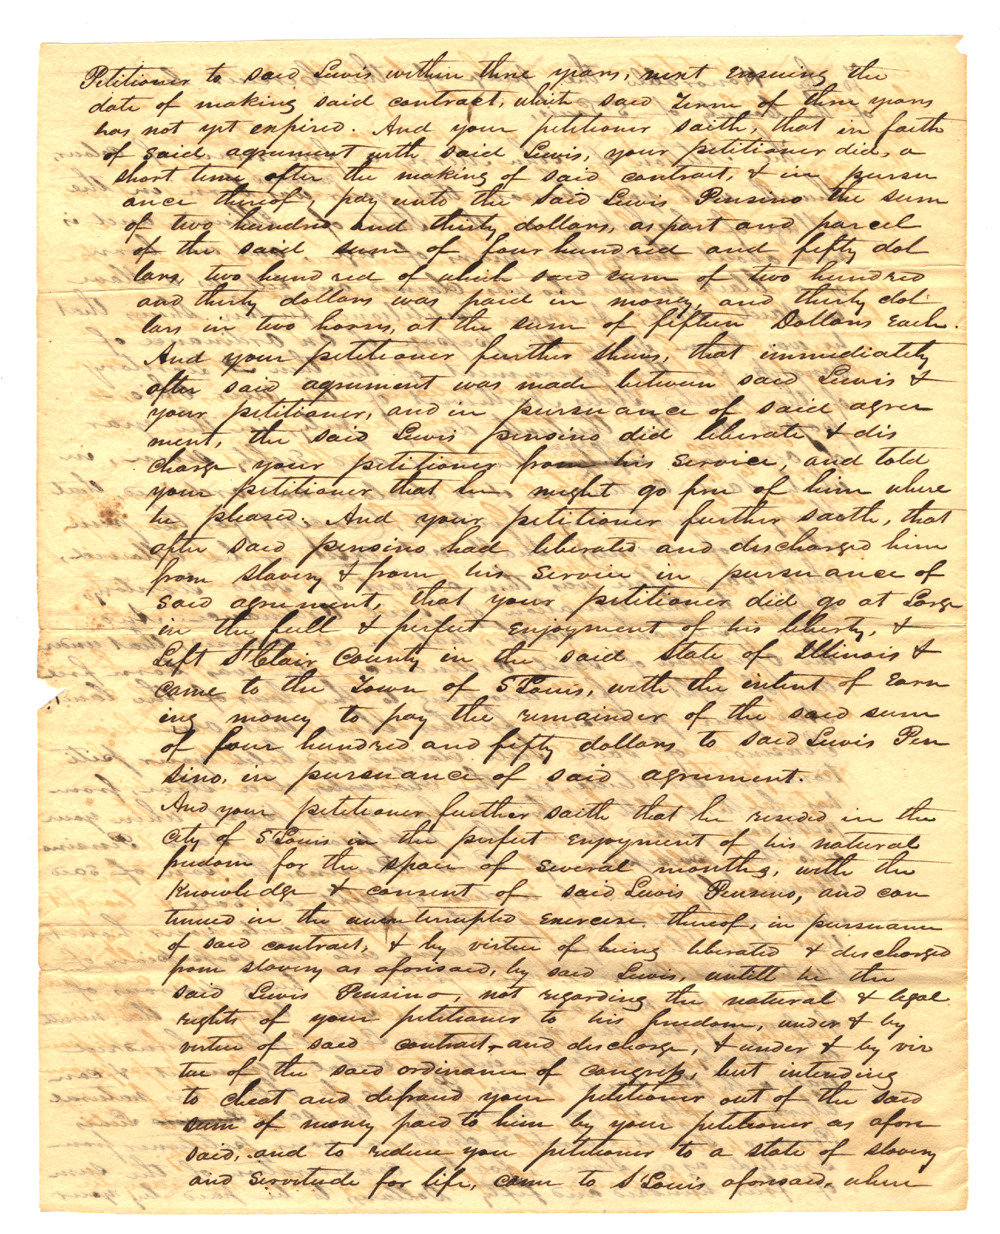 Petitioner to said Lewis within three years, next ensuing the
date of making said contract, which said Term of three years
has not yet expired. And your petitioner saith, that in faith
of said agreement with said Lewis, your petitioner did, a
short time after the making of said contract, & in pursu
ance thereof, pay unto the said Lewis Pensino the sum
of two hundred and thirty dollars, as part and parcel
of the said sum of four hundred and fifty dol
lars, two hundred of which said sum of two hundred
and thirty dollars was paid in money, and thirty dol
lars in two horses, at the sum of fifteen Dollars each.
And your petitioner further shews, that immediately
after said agreement was made between said Lewis &
your petitioner, and in pursuance of said agree
ment, the said Lewis pensino did liberate & dis
charge your petitioner from his service, and told
your petitioner that he might go free of him where
he pleased. And your petitioner further saith, that
after said pensino had liberated and discharged him
from slavery & from his service in pursuance of
said agreement, that your petitioner did go at Large
in the full & perfect enjoyment of his liberty, &
Left St Clair County in the said State of Illinois &
came to the Town of St Louis, with the intent of earn
ing money to pay the remainder of the said sum
of four hundred and fifty dollars to said Lewis Pen
sino, in pursuance of said agreement.
And your petitioner further saith that he resided in the
City of St Louis in the perfect enjoyment of his natural
freedom for the space of several months, with the
Knowledge & consent of said Lewis Pensino, and con
tinued in the uninterrupted exercise thereof, in pursuance
of said contract, & by virtue of being liberated & discharged
from slavery as aforesaid, by said Lewis, untill he the
said Lewis Pensino, not regarding the natural & legal
rights of your petitioner to his freedom, under & by
virtue of said contract, and discharge, & under & by vir
tue of the said ordinance of congress, but intending
to cheat and defraud your petitioner out of the said
sum of money paid to him by your petitioner as afore
said, and to reduce your petitioner to a state of slavery
and servitude for life, came to St Louis aforesaid, where